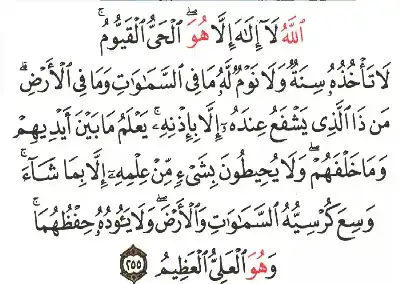 ٱللَّهُ لَآ إِلَٰهَ إِلَّا هُوَ ٱلْحَىُّ ٱلْقَيُّومُ ۚ
لَا تَأْخُذُهُۥ سِنَةٌ وَلَا نَوْمٌ ۚ لَّهُۥ مَا فِى ٱلسَّمَٰوَٰتِ وَمَا فِى ٱلْأَرْضِ ۗ
مَن ذَا ٱلَّذِى يَشْفَعُ عِندَهُۥٓ إِلَّا بِإِذْنِهِۦ ۚ يَعْلَمُ مَا بَيْنَ أَيْدِيهِمْ
وَمَا خَلْفَهُمْ ۖ وَلَا يُحِيطُونَ بِشَىْءٍ مِّنْ عِلْمِهِۦٓ إِلَّا بِمَا شَآءَ ۚ
وَسِعَ كُرْسِيُّهُ ٱلسَّمَٰوَٰتِ وَٱلْأَرْضَ ۖ وَلَا يَـُٔودُهُۥ حِفْظُهُمَا ۚ
وَهُوَ ٱلْعَلِىُّ ٱلْعَظِيمُ ٢٥٥